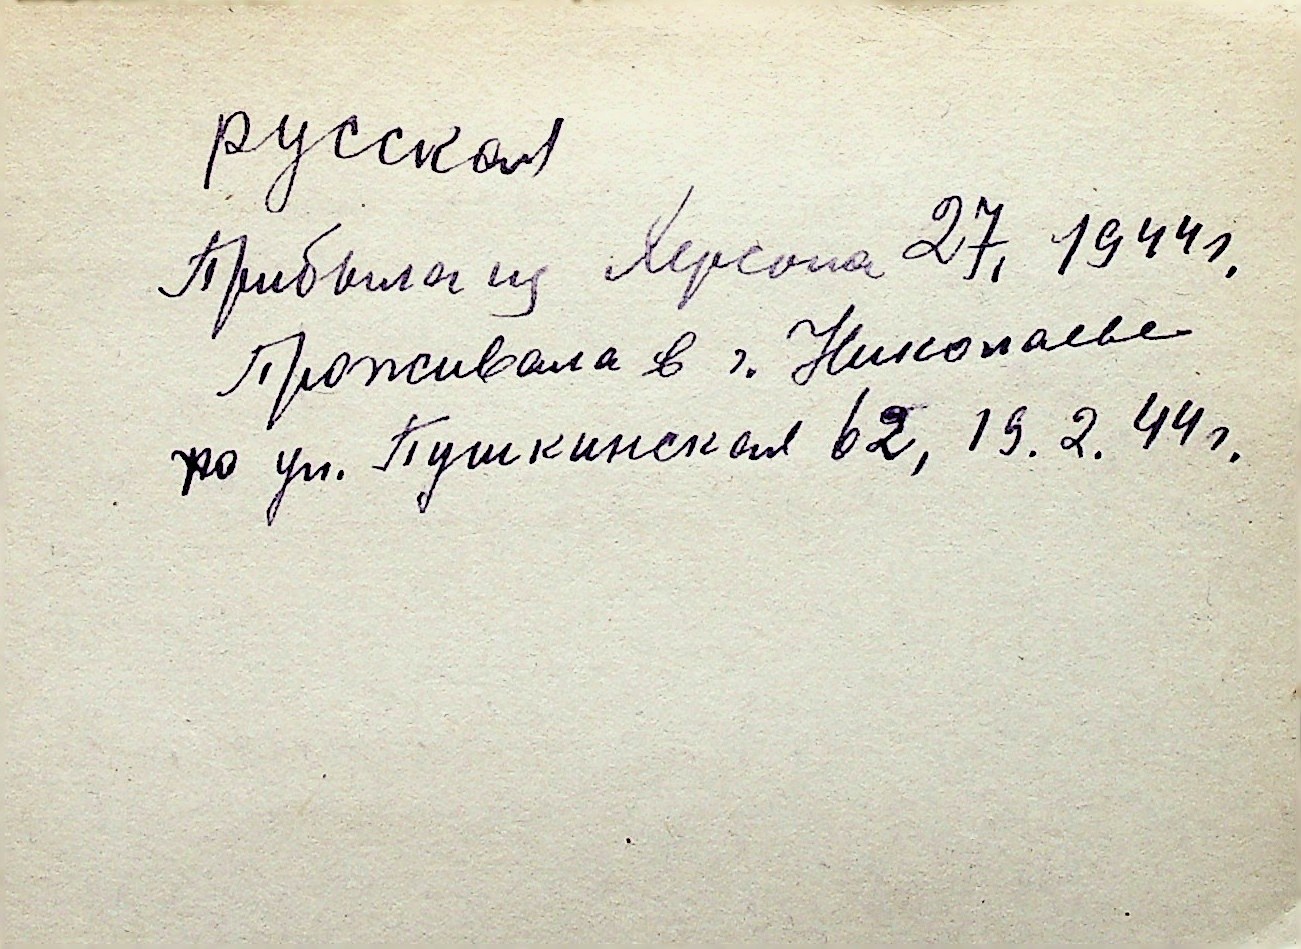 русская
Прибыла из Херсона 27, 1944г.
Проживала в г. Николаеве
по ул. Пушкинская 62, 19. 2. 44г.